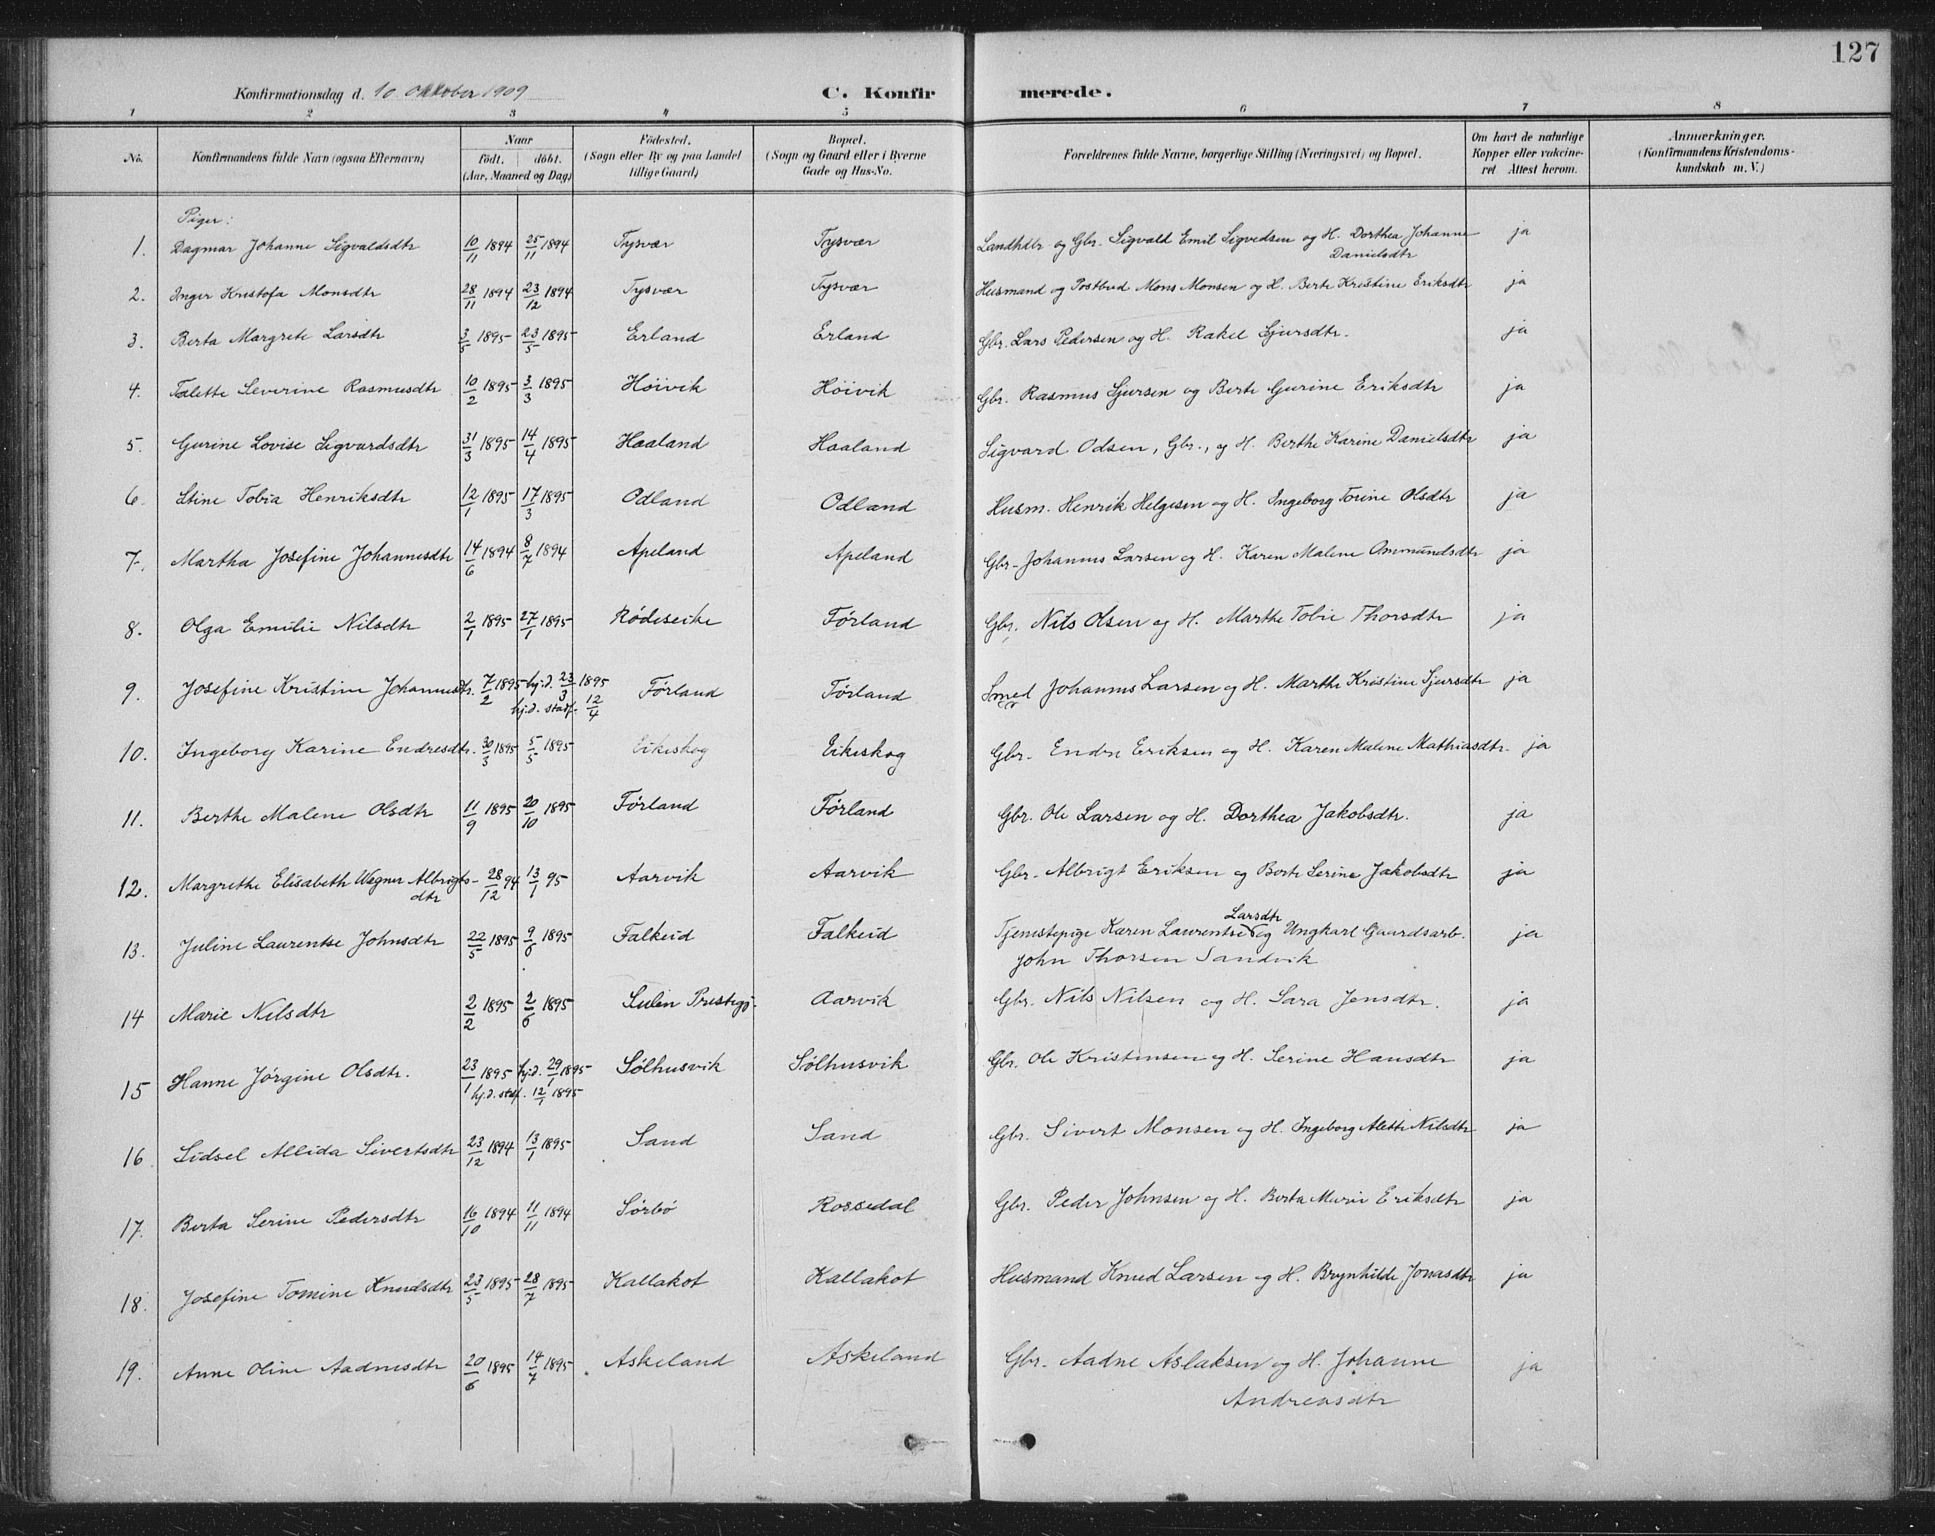 127
Konfirmationsdag d. 10 Oktober 1909 C. Konfirmerede.
1 2 3 4 5 6 7 8
No. Konfirmandens fulde Navn (ogsaa Efternavn) Naar født. døbt. (Aar, Maaned og Dag) Fødested. (Sogn eller By og paa Landet tillige Gaard) Bopæl. (Sogn og Gaard eller i Byerne Gade og Hus-No. Forældrenes fulde Navne, borgerlige Stilling (Næringsvei) og Bopæl. Om havt de naturlige Kopper eller vakcineret Attest herom. Anmærkninger. (Konfirmandens Kristendomskundskab m. V.)
Piger:
1. Dagmar Johanne Sigvaldsdtr 10/11 1894 25/11 1894 Tysvær Tysvær Landhdlr og Gbr. Sigvald Emil Sigvedsen og H. Dorthea Johanne ja
Danielsdtr
2. Inger Kristofa Monsdtr 28/11 1894 23/12 1894 Tysvær Tysvær Husmand og Postbud Mons Monsen og H. Berte Kristine Eriksdtr ja
3. Berta Margrete Larsdtr 3/5 1895 23/5 1895 Erland Erland Gbr. Lars Pedersen og H. Rakel Gjursdtr. ja
4. Talette Severine Rasmusdtr 10/2 1895 3/3 1895 Höivik Höivik Gbr. Rasmus Gjursen og Berte Gurine Eriksdtr ja
5. Gurine Lovise Sigvardsdtr 31/3 1895 14/4 1895 Haaland Haaland Sigvard Odsen, Gbr., og H. Berthe Karine Danielsdtr ja
6. Stine Tobia Henriksdtr 12/1 1895 17/3 1895 Odland Odland Husm. Henrik Helgesen og H. Ingeborg Torine Olsdtr ja
7. Martha Josefine Johannesdtr 14/6 1894 8/7 1894 Apeland Apeland Gbr. Johannes Larsen og H. Karen Malene Ommundsdtr ja
8. Olga Emilie Nilsdtr 2/1 1895 27/1 1895 Rødeseike Førland Gbr. Nils Olsen og H. Marthe Tobie Thorsdtr ja
9. Josefine Kristine Johannesdtr. 7/2 1895 hj.d. 23/3 1895 Førland Førland Smed Johannes Larsen og H. Marthe Kristine Sjursdtr ja
hj.d. stadf. 12/4
10. Ingeborg Karine Endresdtr. 30/3 1895 5/5 1895 Eikeskog Eikeskog Gbr. Endre Eriksen og H. Karen Malene Mathiasdtr. ja
11. Berthe Malene Olsdtr 11/9 1895 20/10 1895 Førland Førland Gbr. Ole Larsen og H. Dorthea Jakobsdtr. ja
12. Margrethe Elisabeth Wegner Albrigts- 28/12 94 13/1 95 Aarvik Aarvik Gbr. Albrigt Eriksen og Berte Serine Jakobsdtr ja
dtr
Larsdtr
13. Juline Laurentse Johnsdtr 22/5 1895 9/6 1895 Falkeid Falkeid Tjenestepige Karen Laurentse og Ungkarl Gaardsarb. ja
John Thorsen Sandvik
14 Marie Nilsdtr 2/2 1895 2/6 1895 Sulen Prestegj. Aarvik Gbr. Nils Nilsen og H. Sara Jensdtr. ja
15 Hanne Jørgine Olsdtr. 23/1 1895 hj.d. 29/1 1895 Sølhusvik Sølhusvik Gbr. Ole Kristensen og H. Serine Hansdtr ja
hj.d. stadf. 12/1 1895
16. Sidsel Allida Sivertsdtr 23/12 1894 13/1 1895 Sand Sand Gbr. Sivert Monsen og H. Ingeborg Alette Nilsdtr ja
17. Berta Serine Pedersdtr 16/10 1894 11/11 1894 Sørbø Rossedal Gbr. Peder Johnsen og H. Berta Marie Eriksdtr ja
18. Josefine Tomine Knudsdtr 23/5 1895 28/7 1895 Kallakot Kallakot Husmand Knud Larsen og H. Brynhilde Jonasdtr ja
19. Anne Oline Aadnesdtr 20/6 1895 14/7 1895 Askeland Askeland Gbr. Aadne Aslaksen og H. Johanne ja
Andreasdtr